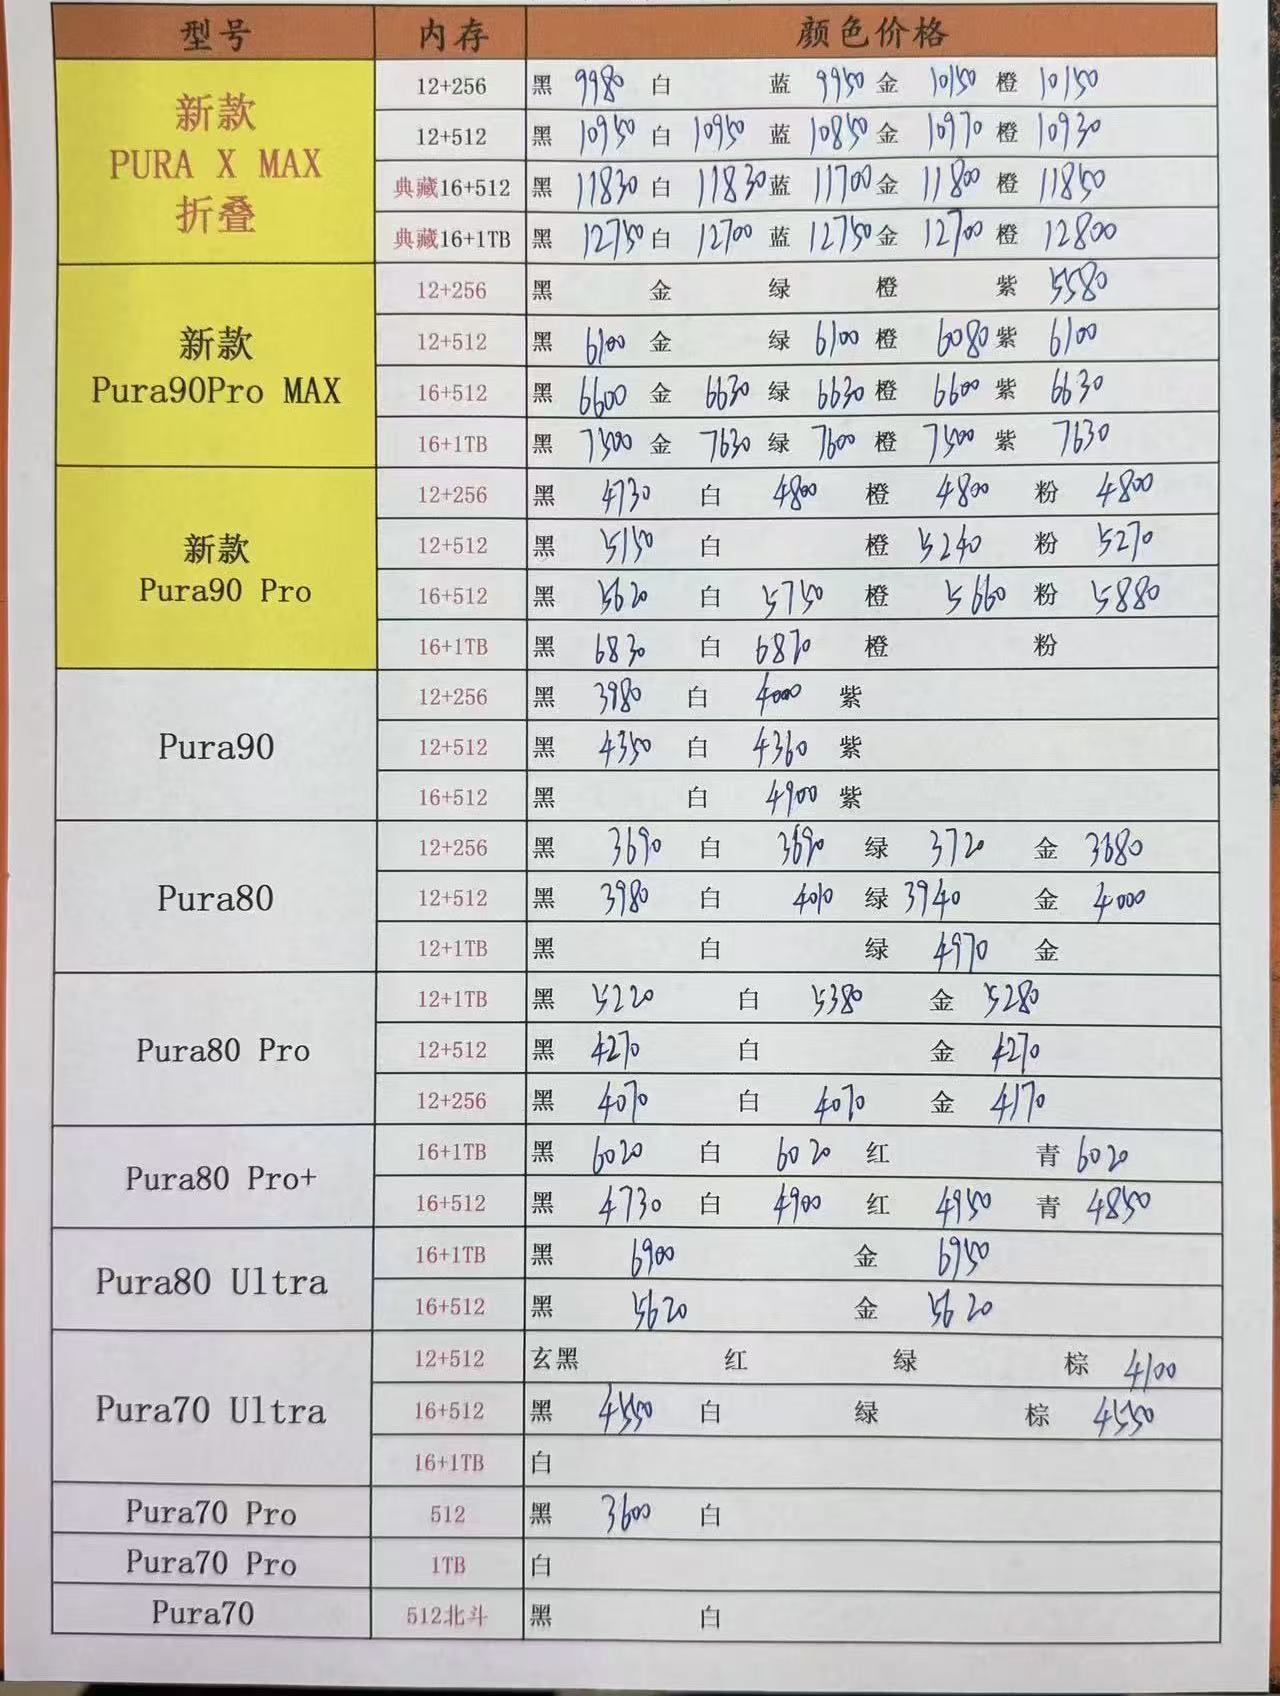 型号 内存 颜色价格
新款 PURA X MAX 折叠
12+256 黑 9980 白 蓝 9950 金 10150 橙 10150
12+512 黑 10950 白 10950 蓝 10850 金 10970 橙 10930
典藏16+512 黑 11830 白 11830 蓝 11700 金 11800 橙 11850
典藏16+1TB 黑 12750 白 12700 蓝 12750 金 12700 橙 12800
新款 Pura90Pro MAX
12+256 黑 金 绿 橙 紫 5580
12+512 黑 6100 金 绿 6100 橙 6080 紫 6100
16+512 黑 6600 金 6630 绿 6630 橙 6600 紫 6630
16+1TB 黑 7500 金 7630 绿 7600 橙 7500 紫 7630
新款 Pura90 Pro
12+256 黑 4730 白 4800 橙 4800 粉 4800
12+512 黑 5150 白 橙 5240 粉 5270
16+512 黑 5620 白 5750 橙 5660 粉 5880
16+1TB 黑 6830 白 6870 橙 粉
Pura90
12+256 黑 3980 白 4000 紫
12+512 黑 4350 白 4360 紫
16+512 黑 白 4900 紫
Pura80
12+256 黑 3690 白 3690 绿 3720 金 3680
12+512 黑 3980 白 4010 绿 3940 金 4000
12+1TB 黑 白 绿 4970 金
Pura80 Pro
12+1TB 黑 5220 白 5380 金 5280
12+512 黑 4270 白 金 4270
12+256 黑 4070 白 4070 金 4170
Pura80 Pro+
16+1TB 黑 6020 白 6020 红 青 6020
16+512 黑 4730 白 4900 红 4950 青 4850
Pura80 Ultra
16+1TB 黑 6900 金 6950
16+512 黑 5620 金 5620
Pura70 Ultra
12+512 玄黑 红 绿 棕 4100
16+512 黑 4550 白 绿 棕 4550
16+1TB 白
Pura70 Pro 512 黑 3600 白
Pura70 Pro 1TB 白
Pura70 512北斗 黑 白